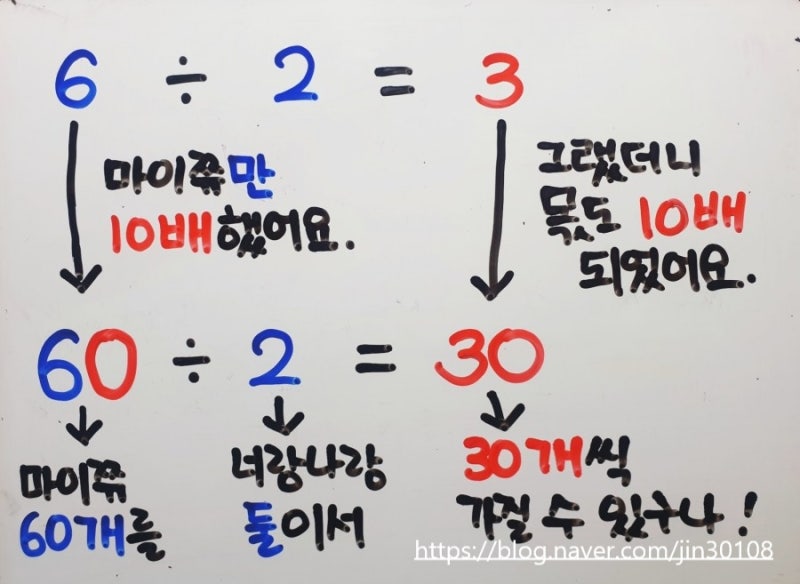 6 ÷ 2 = 3
마이쮸만
10배했어요.
그랬더니
몫도 10배
되었어요.
60 ÷ 2 = 30
마이쮸
60개를
너랑나랑
둘이서
30개씩
가질 수 있구나!
https://blog.naver.com/jin30108